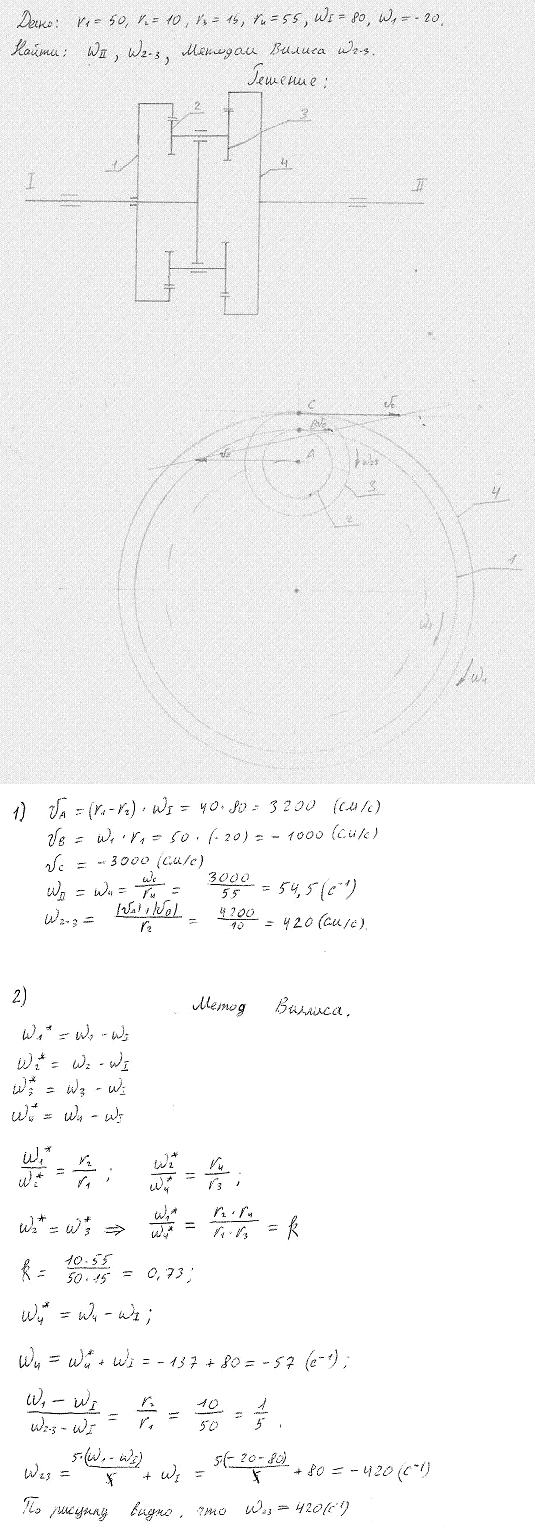 Дано: r₁ = 50, r₂ = 10, r₃ = 15, r₄ = 55, ω_I = 80, ω₁ = -20.
Найти: ω_II, ω₂₋₃, Методом Вилиса ω₂₋₃.
Решение:
2
3
1
4
I
II
C
v_C
A
ω₂₃
3
2
4
1
ω₄
1) v_A = (r₁ - r₂) · ω_I = 40 · 80 = 3200 (см/с)
v_B = ω₁ · r₁ = 50 · (-20) = -1000 (см/с)
v_C = -3000 (см/с)
ω_II = ω₄ = ω_C/r₄ = 3000/55 = 54,5 (с⁻¹)
ω₂₋₃ = |v_A|+|v_B|/r₂ = 4200/10 = 420 (см/с).
2) Метод Виллиса.
ω₁* = ω₁ - ω_I
ω₂* = ω₂ - ω_I
ω₃* = ω₃ - ω_I
ω₄* = ω₄ - ω_I
ω₁*/ω₂* = r₂/r₁ ; ω₂*/ω₄* = r₄/r₃ ;
ω₂* = ω₃* ⇒ ω₁*/ω₄* = r₂ · r₄/r₁ · r₃ = k
k = 10 · 55/50 · 15 = 0,73 ;
ω₄* = ω₄ - ω_I ;
ω₄ = ω₄* + ω_I = -137 + 80 = -57 (с⁻¹) ;
ω₁ - ω_I/ω₂₋₃ - ω_I = r₂/r₁ = 10/50 = 1/5 .
ω₂₃ = 5·(ω₁ - ω_I)/1 + ω_I = 5·(-20 - 80)/1 + 80 = -420 (с⁻¹)
По рисунку видно, что ω₂₃ = 420 (с⁻¹)